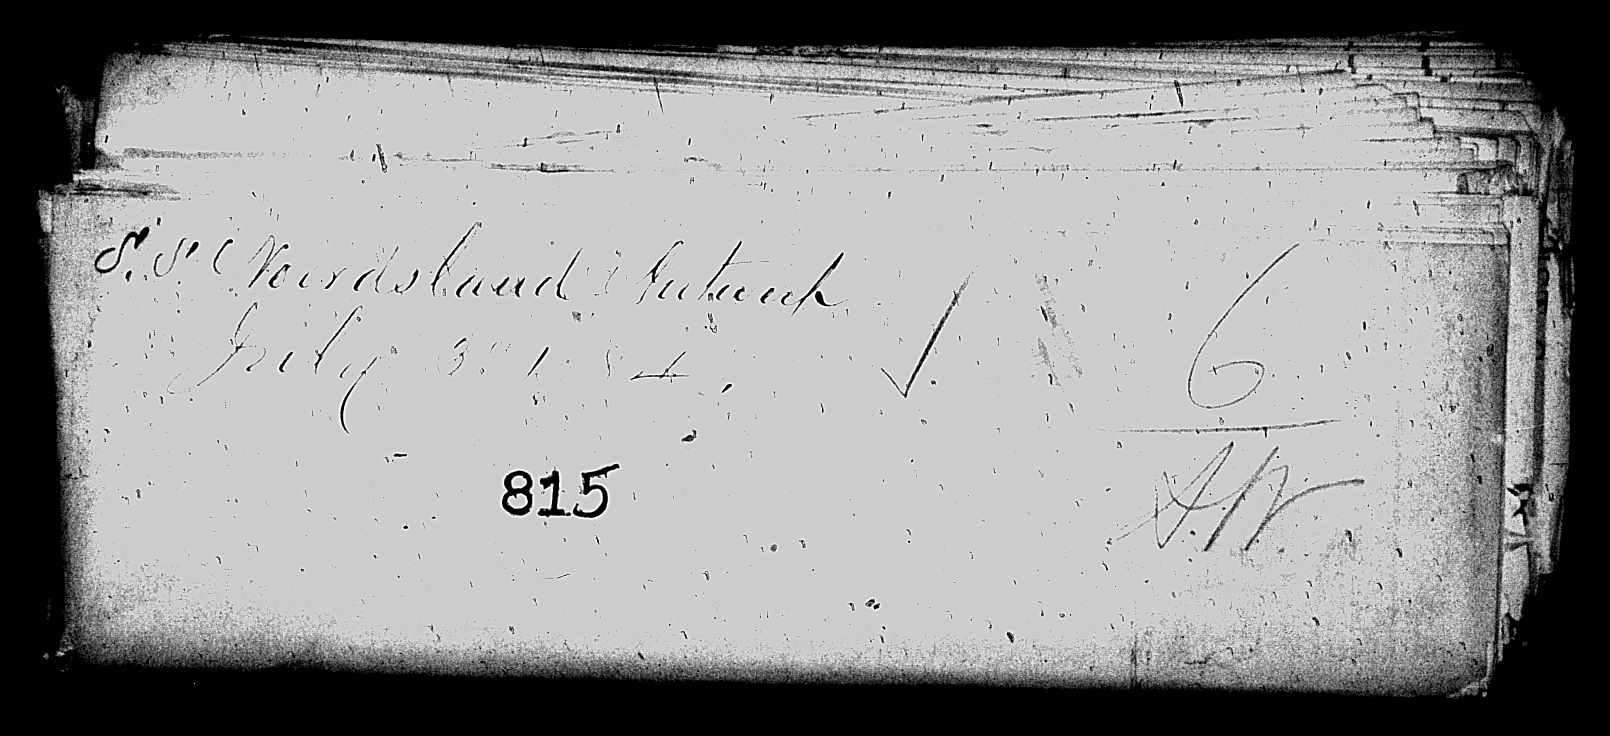 S.S. Noordsland Antwerp
July 31. 84.
6
815